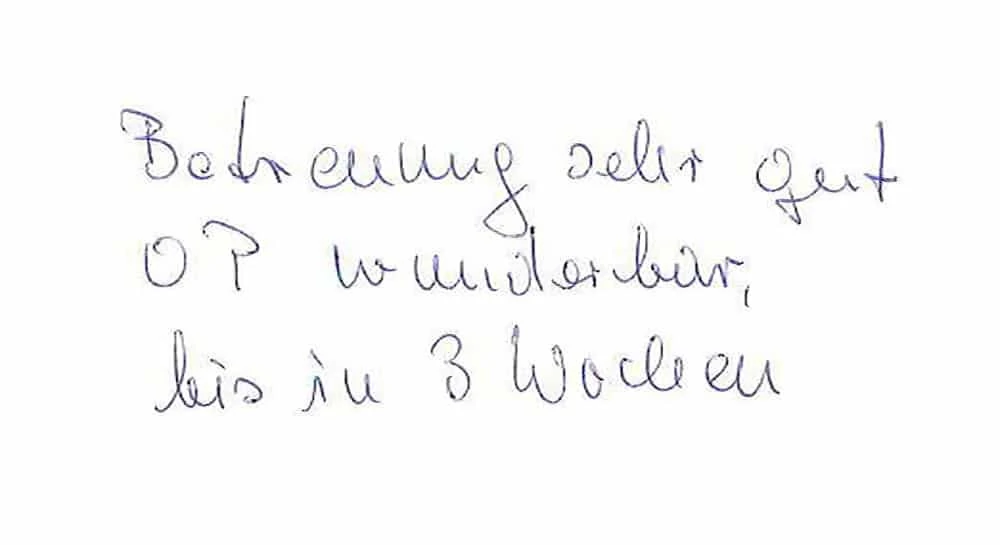 Betreuung sehr gut
OP wunderbar,
bis in 3 Wochen